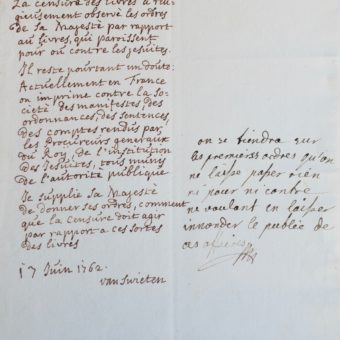 La censure des livres a reli-
gieusement observé les ordres
de Sa Majesté par rapport
au livres, qui paroissent
pour ou contre les jesuites.
Il reste pourtant un doute:
Actuellement en France
on imprime contre la So-
cieté des manifestes, des
ordonnances, des sentences,
des comptes rendus par
les Procureurs generaux
du Roy, de l'institution
des Jesuites, tous munis
de l'autorité publique
Je supplie Sa Majesté
de donner ses ordres, comment
que la censure doit agir
par rapport a ces sortes
des livres
17 Juin 1762.
van Swieten
on se tiendra sur
les premiers ordres qu'on
ne laisse passer rien
ni pour ni contre
ne voulant en laisser
innonder le publique de
ces affaires